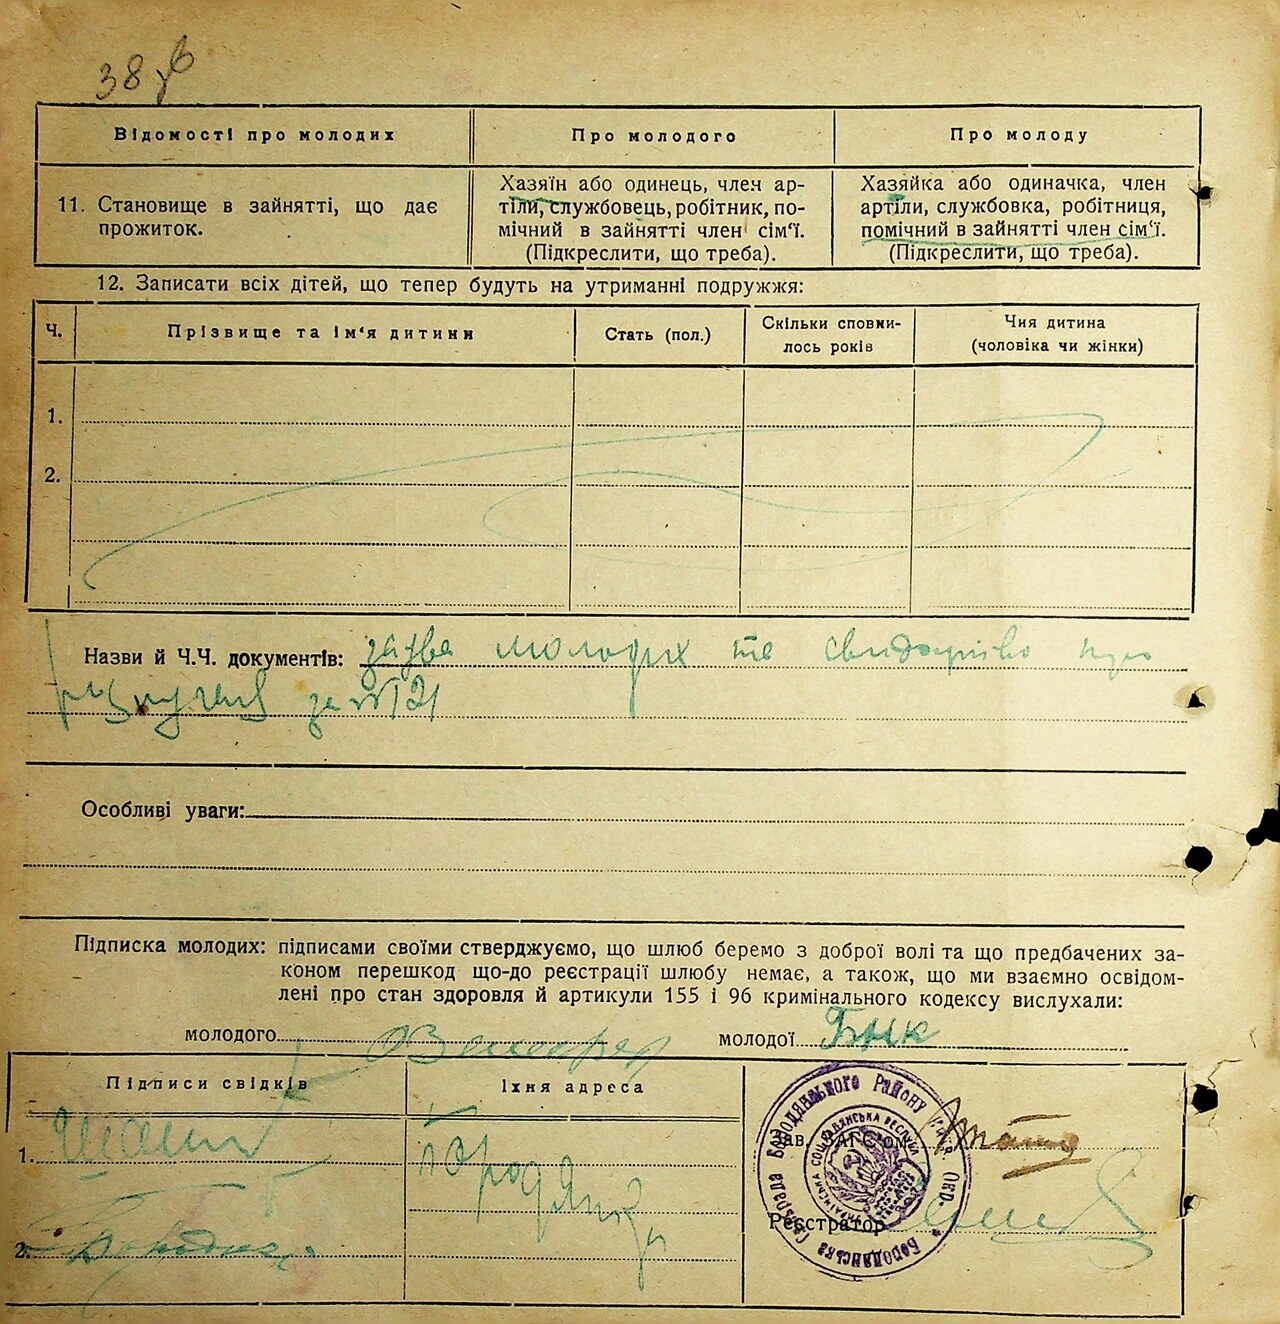 38 зв
Відомості про молодих
Про молодого
Про молоду
11. Становище в зайнятті, що дає
прожиток.
Хазяїн або одинець, член ар-
тіли, службовець, робітник, по-
мічний в зайнятті член сім'ї.
(Підкреслити, що треба).
Хазяйка або одиначка, член
артіли, службовка, робітниця,
помічний в зайнятті член сім'ї.
(Підкреслити, що треба).
12. Записати всіх дітей, що тепер будуть на утриманні подружжя:
Ч.
Прізвище та ім'я дитини
Стать (пол.)
Скільки сповни-
лось років
Чия дитина
(чоловіка чи жінки)
1.
2.
Назви й Ч.Ч. документів: заява молодих та свидоцтво про
за №121
Особливі уваги:
Підписка молодих: підписами своїми стверджуємо, що шлюб беремо з доброї волі та що предбачених за-
коном перешкод що-до реєстрації шлюбу немає, а також, що ми взаємно освідом-
лені про стан здоровля й артикули 155 і 96 кримінального кодексу вислухали:
молодого
молодої
Підписи свідків
Їхня адреса
1.
Бородянка
2.
Зав. ЗАГС'ом
Реєстратор
Бородянська Сільрада Бородянського Району